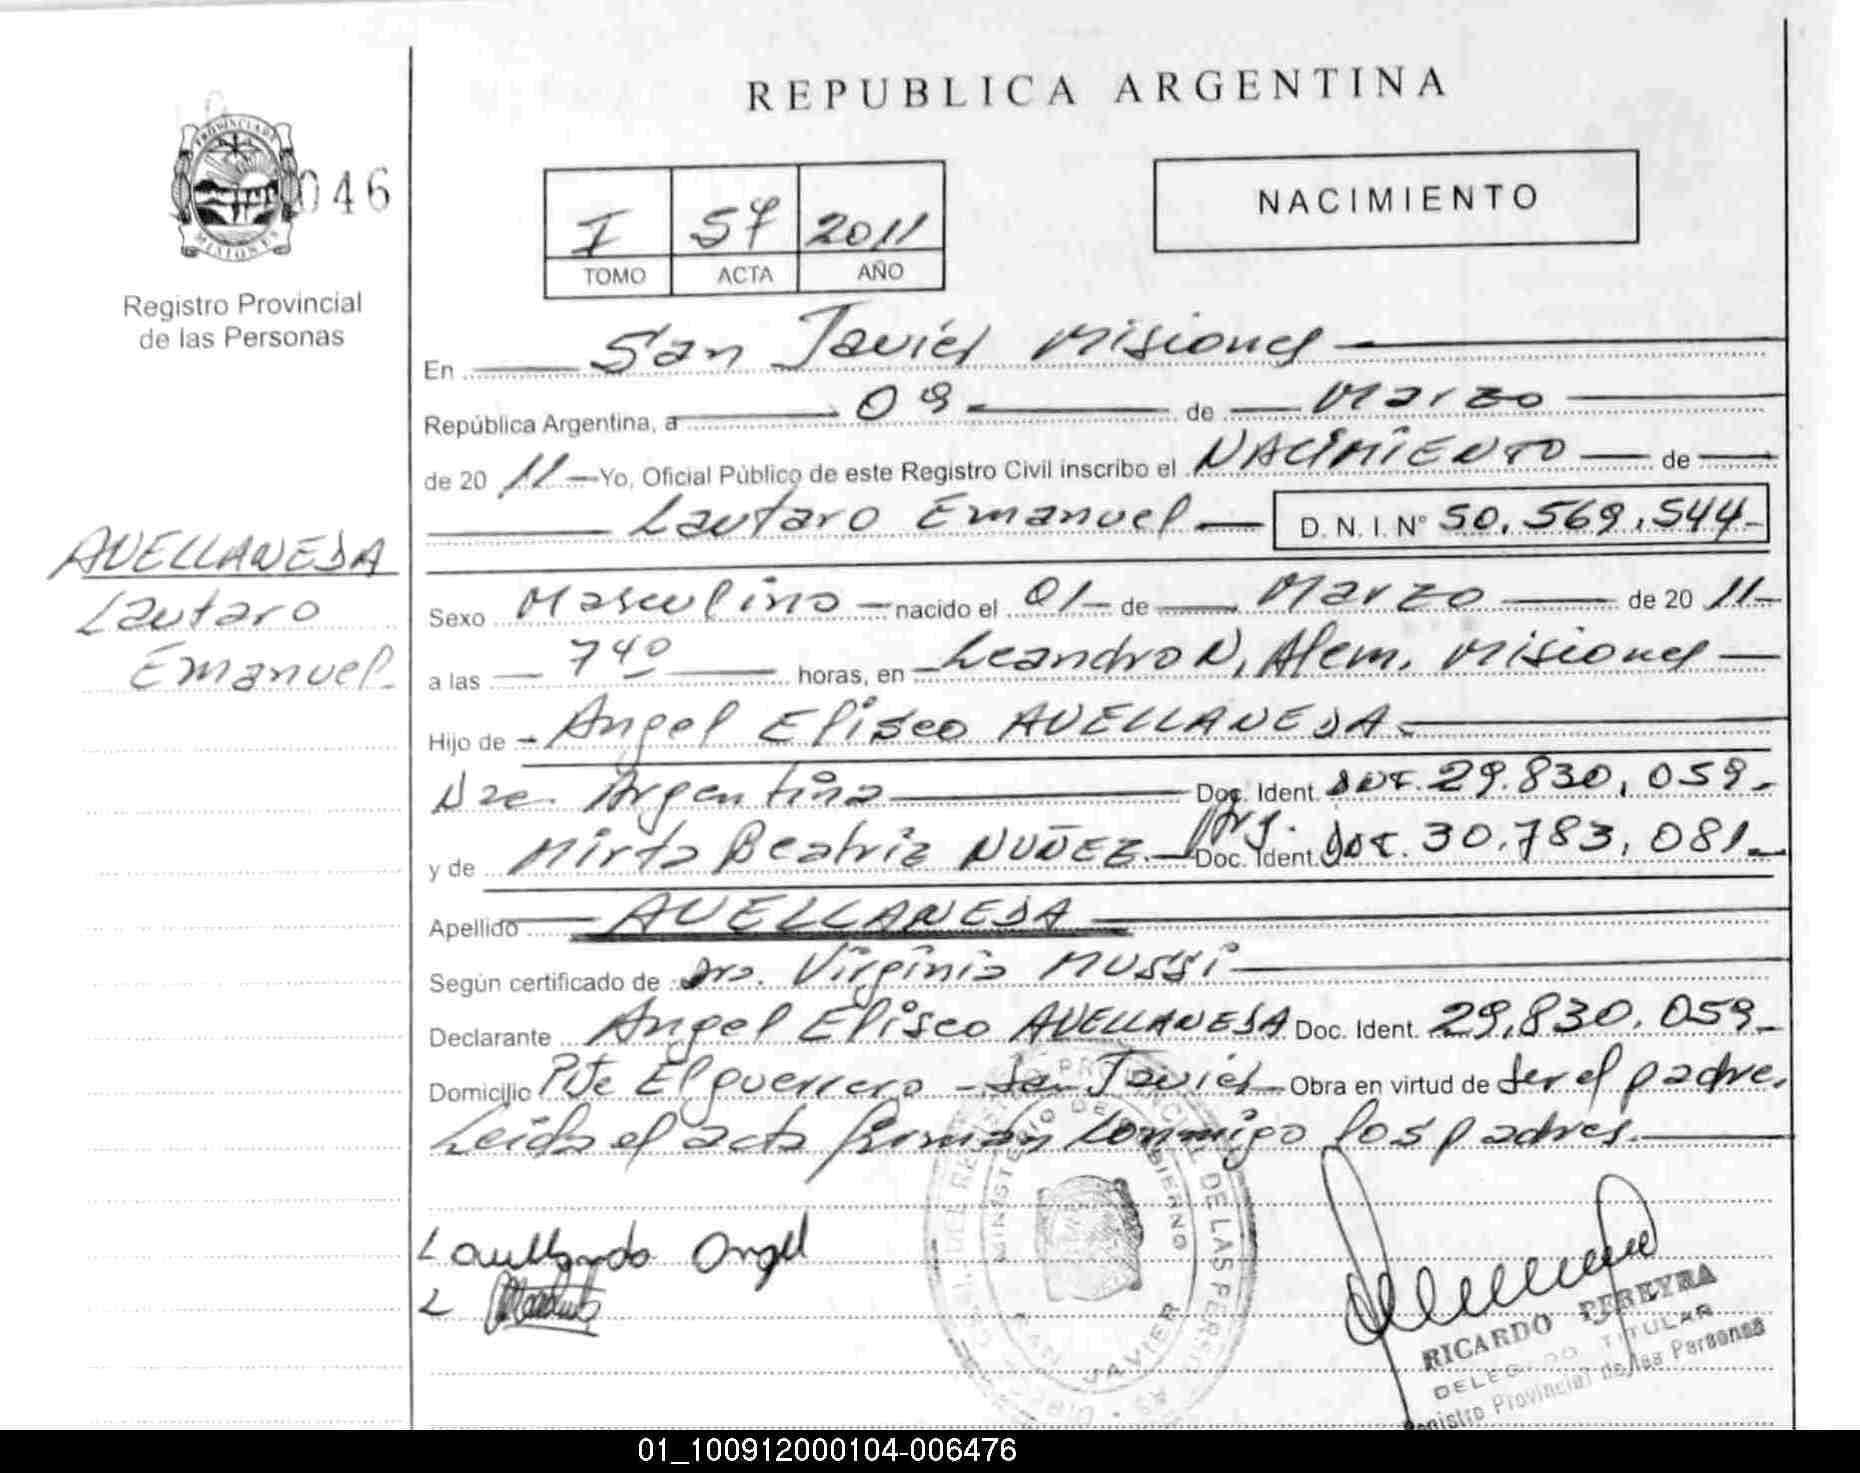 REPUBLICA ARGENTINA
PROVINCIA DE
MISIONES
046
Registro Provincial
de las Personas
I 57 2011
TOMO ACTA AÑO
NACIMIENTO
En San Javier Misiones
República Argentina, a 09 de Marzo
de 20 11 Yo, Oficial Público de este Registro Civil inscribo el NACIMIENTO de
Lautaro Emanuel D. N. I. N° 50.569.544
AVELLANEDA
Lautaro
Emanuel
Sexo Masculino nacido el 01 de Marzo de 20 11
a las 7 40 horas, en Leandro N. Alem. Misiones
Hijo de Angel Eliseo AVELLANEDA
Nac. Argentina Doc. Ident. 29.830.059
y de Mirta Beatriz NUÑEZ Arg. Doc. Ident. 30.783.081
Apellido AVELLANEDA
Según certificado de Dra. Virginia Mussi
Declarante Angel Eliseo AVELLANEDA Doc. Ident. 29.830.059
Domicilio Pje El guerrero - San Javier Obra en virtud de ser el padre.
Leida el acta firman conmigo los padres
MINISTERIO DE GOBIERNO
SAN JAVIER
RICARDO PEREYRA
DELEGADO TITULAR
Registro Provincial de las Personas
01_100912000104-006476